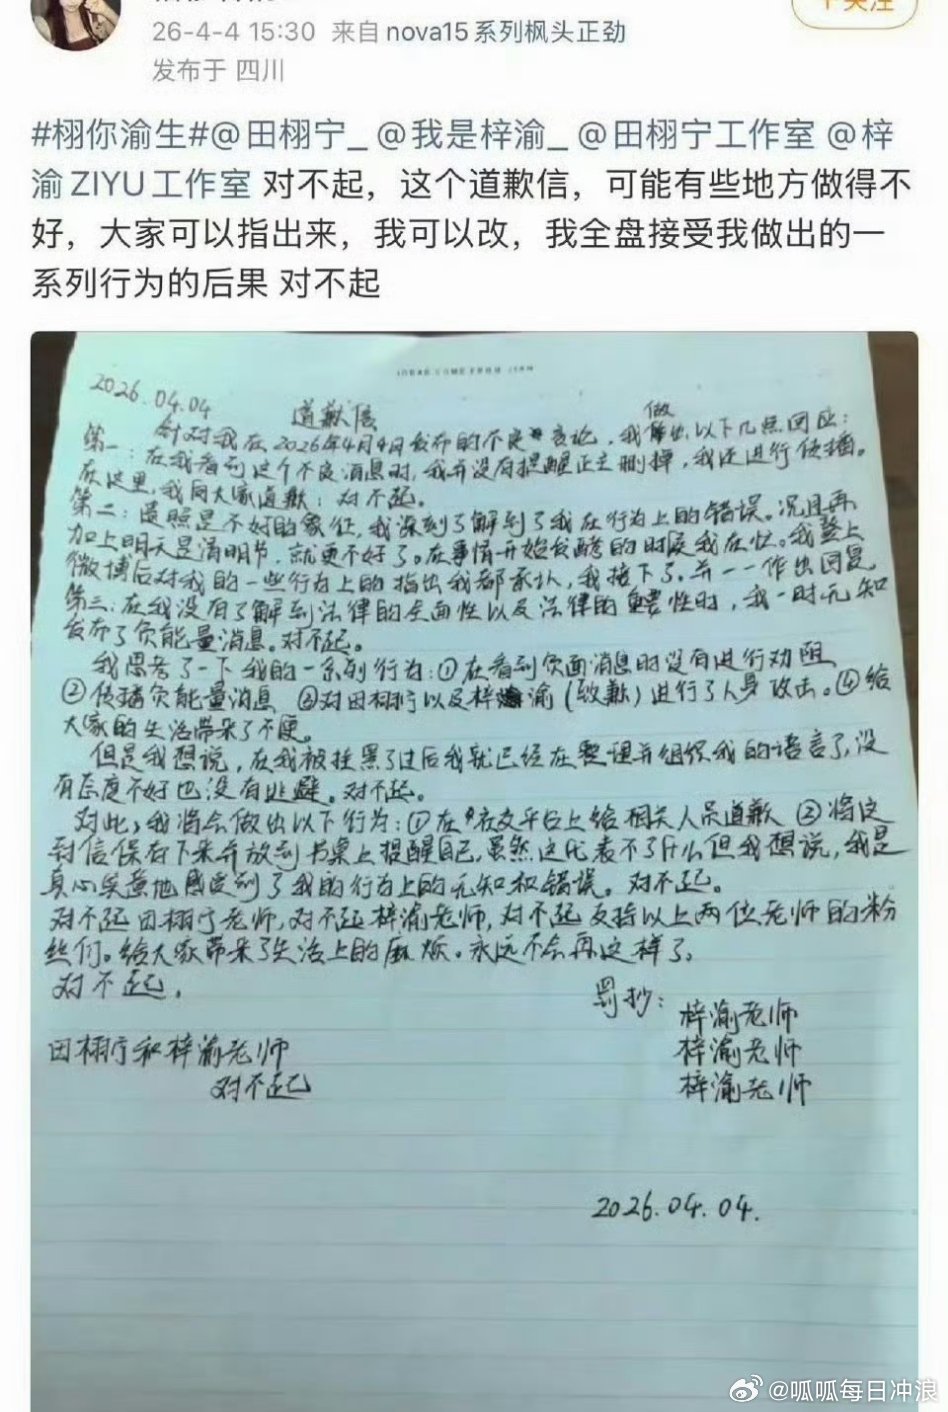 26-4-4 15:30 来自 nova15系列枫头正劲
发布于 四川
关注
#栩你渝生#@田栩宁_ @我是梓渝_ @田栩宁工作室 @梓
渝ZIYU工作室 对不起，这个道歉信，可能有些地方做得不
好，大家可以指出来，我可以改，我全盘接受我做出的一
系列行为的后果 对不起
2026.04.04
道歉信
做
针对我在2026年4月4日发布的不良言论，我出以下几点回应：
第一：在我看到这个不良消息时，我并没有提醒正主删掉，我还进行传播。
在这里，我向大家道歉：对不起。
第二：遗照是不好的象征，我深刻了解到了我在行为上的错误。况且再
加上明天是清明节，就更不好了。在事情开始发酵的时候我在忙。我登上
微博后对我的一些行为上的指出我都承认，我接下了，并一一作出回复。
第三：在我没有了解到法律的全面性以及法律的重要性时，我一时无知
发布了负能量消息。对不起。
我思考了一下我的一系列行为：①在看到负面消息时没有进行劝阻
②传播负能量消息 ③对田栩宁以及梓渝（致歉）进行了人身攻击。④给
大家的生活带来了不便。
但是我想说，在我被挂黑了过后我就已经在整理并组织我的语言了，没
有态度不好也没有逃避。对不起。
对此，我将会做出以下行为：①在社交平台上给相关人员道歉 ②将这
封信保存下来并放到书桌上提醒自己，虽然这代表不了什么但我想说，我是
真心实意地感受到了我的行为上的无知和错误。对不起。
对不起田栩宁老师，对不起梓渝老师，对不起支持以上两位老师的粉
丝们。给大家带来了生活上的麻烦。永远不会再这样了。
对不起。
罚抄：
梓渝老师
田栩宁和梓渝老师
梓渝老师
对不起
梓渝老师
2026.04.04.
@呱呱每日冲浪